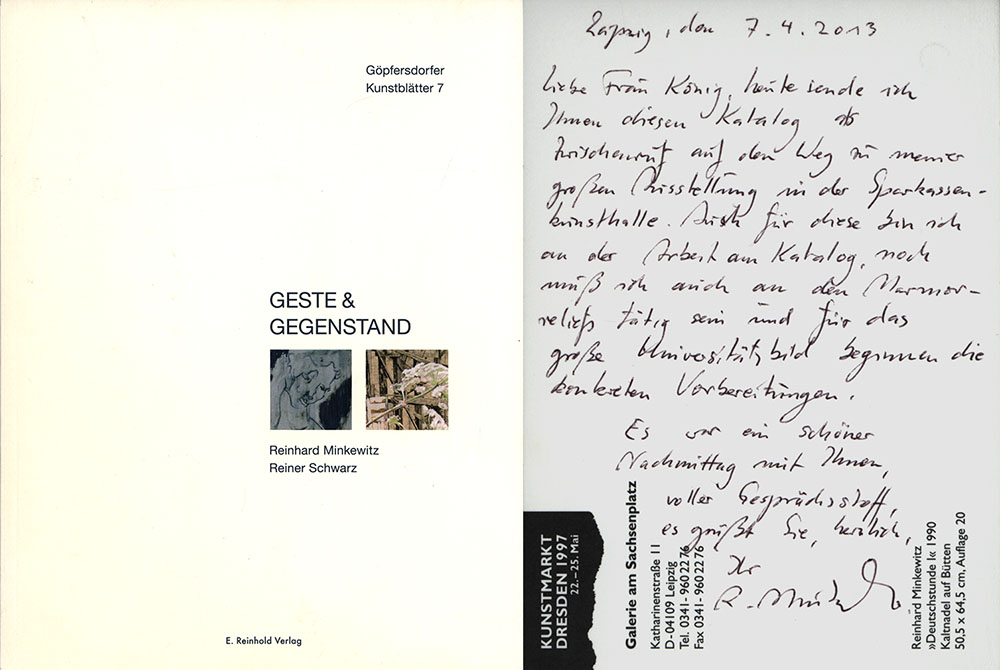 Göpfersdorfer
Kunstblätter 7
GESTE &
GEGENSTAND
Reinhard Minkewitz
Reiner Schwarz
E. Reinhold Verlag
Leipzig, den 7.4.2013
Liebe Frau König, heute sende ich
Ihnen diesen Katalog als
Zwischenruf auf dem Weg zu meiner
großen Ausstellung in der Sparkassen-
kunsthalle. Auch für diese bin ich
an der Arbeit am Katalog, noch
muß ich auch an den Marmor-
reliefs tätig sein und für das
große Universitätsbild beginnen die
konkreten Vorbereitungen.
Es war ein schöner
Nachmittag mit Ihnen,
voller Gesprächsstoff,
es grüßt Sie, herzlich,
Ihr
R. Minkewitz
KUNSTMARKT
DRESDEN 1997
22.–25. Mai
Galerie am Sachsenplatz
Katharinenstraße 11
D-04109 Leipzig
Tel. 0341- 960 22 76
Fax 0341- 960 22 76
Reinhard Minkewitz
»Deutschstunde I« 1990
Kaltnadel auf Bütten
50,5 x 64,5 cm, Auflage 20